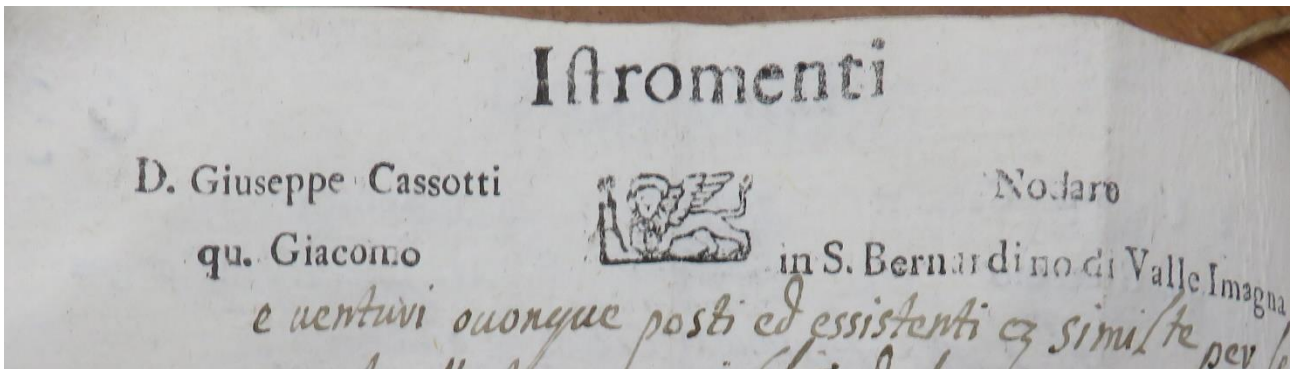 Iſtromenti
D. Giuseppe Cassotti
Nodaro
qu. Giacomo
in S. Bernardino di Valle Imagna
e venturi ouonque posti ed essistenti
per